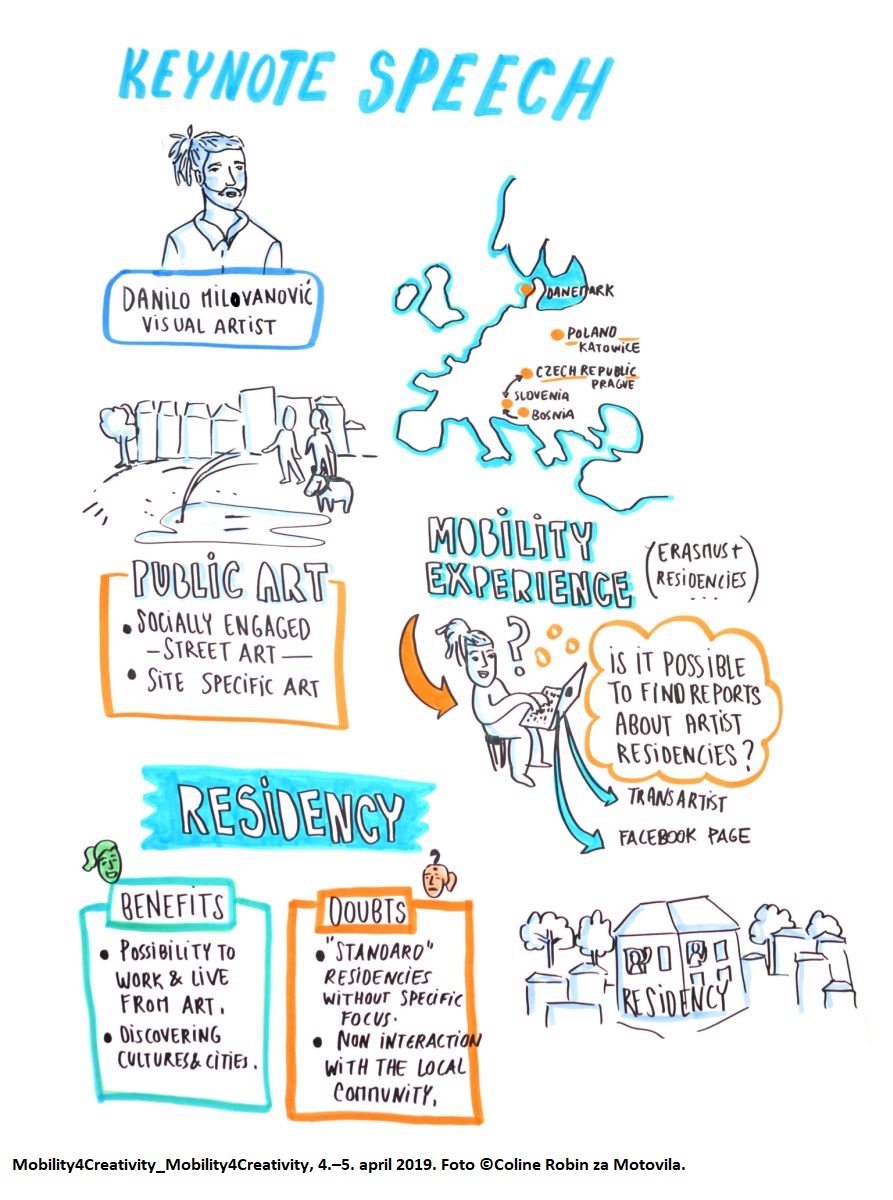 KEYNOTE SPEECH
DANILO MILOVANOVIĆ
VISUAL ARTIST
DANEMARK
POLAND
KATOWICE
CZECH REPUBLIC
PRAGUE
SLOVENIA
BOSNIA
PUBLIC ART
• SOCIALLY ENGAGED
– STREET ART —
• SITE SPECIFIC ART
MOBILITY
EXPERIENCE
(ERASMUS+
RESIDENCIES
...)
?
IS IT POSSIBLE
TO FIND REPORTS
ABOUT ARTIST
RESIDENCIES?
TRANSARTIST
FACEBOOK PAGE
RESIDENCY
BENEFITS
• POSSIBILITY TO
WORK & LIVE
FROM ART.
• DISCOVERING
CULTURES & CITIES.
?
DOUBTS
• "STANDARD"
RESIDENCIES
WITHOUT SPECIFIC
FOCUS.
• NON INTERACTION
WITH THE LOCAL
COMMUNITY.
RESIDENCY
Mobility4Creativity_Mobility4Creativity, 4.–5. april 2019. Foto ©Coline Robin za Motovila.